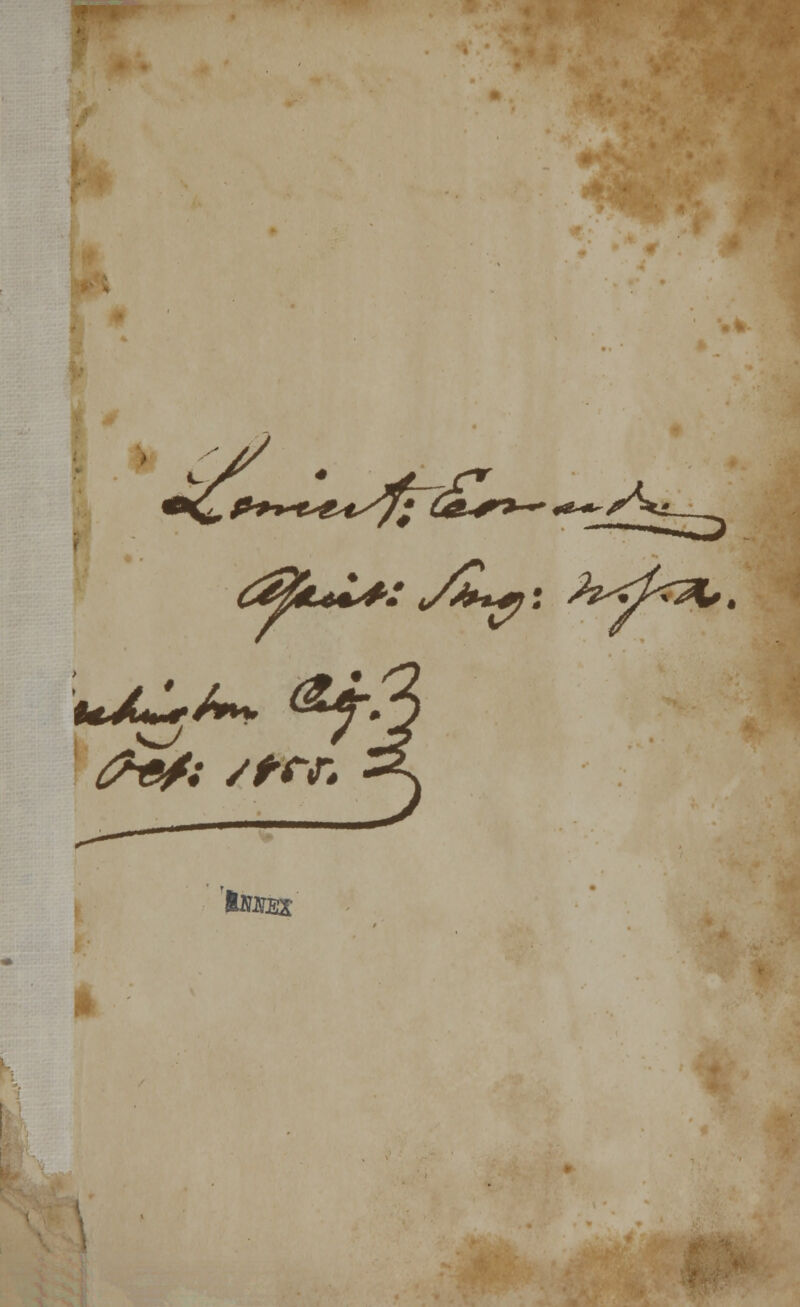 Lewis A: Edwards
Assist: Surg: U.S.A.
ashington City.
Oct: 1855.
ANNEX